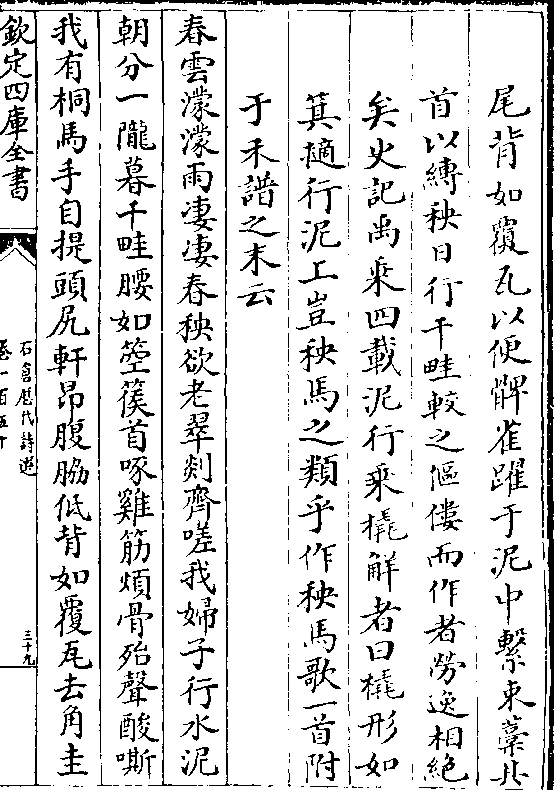 尾背如覆瓦以便髀雀躍于泥中繫束藁其
首以縛秧日行千畦較之傴僂而作者勞逸相絶
矣史記禹乗四載泥行乗橇解者曰橇形如
箕擿行泥上豈秧馬之類乎作秧馬歌一首附
于禾譜之末云
春雲濛濛雨凄凄春秧欲老翠剡齊嗟我婦子行水泥
朝分一隴暮千畦腰如箜篌首啄雞筋煩骨殆聲酸嘶
我有桐馬手自提頭尻軒昂腹脇低背如覆瓦去角圭
欽定四庫全書
石倉歷代詩選
卷一百五十
三十九